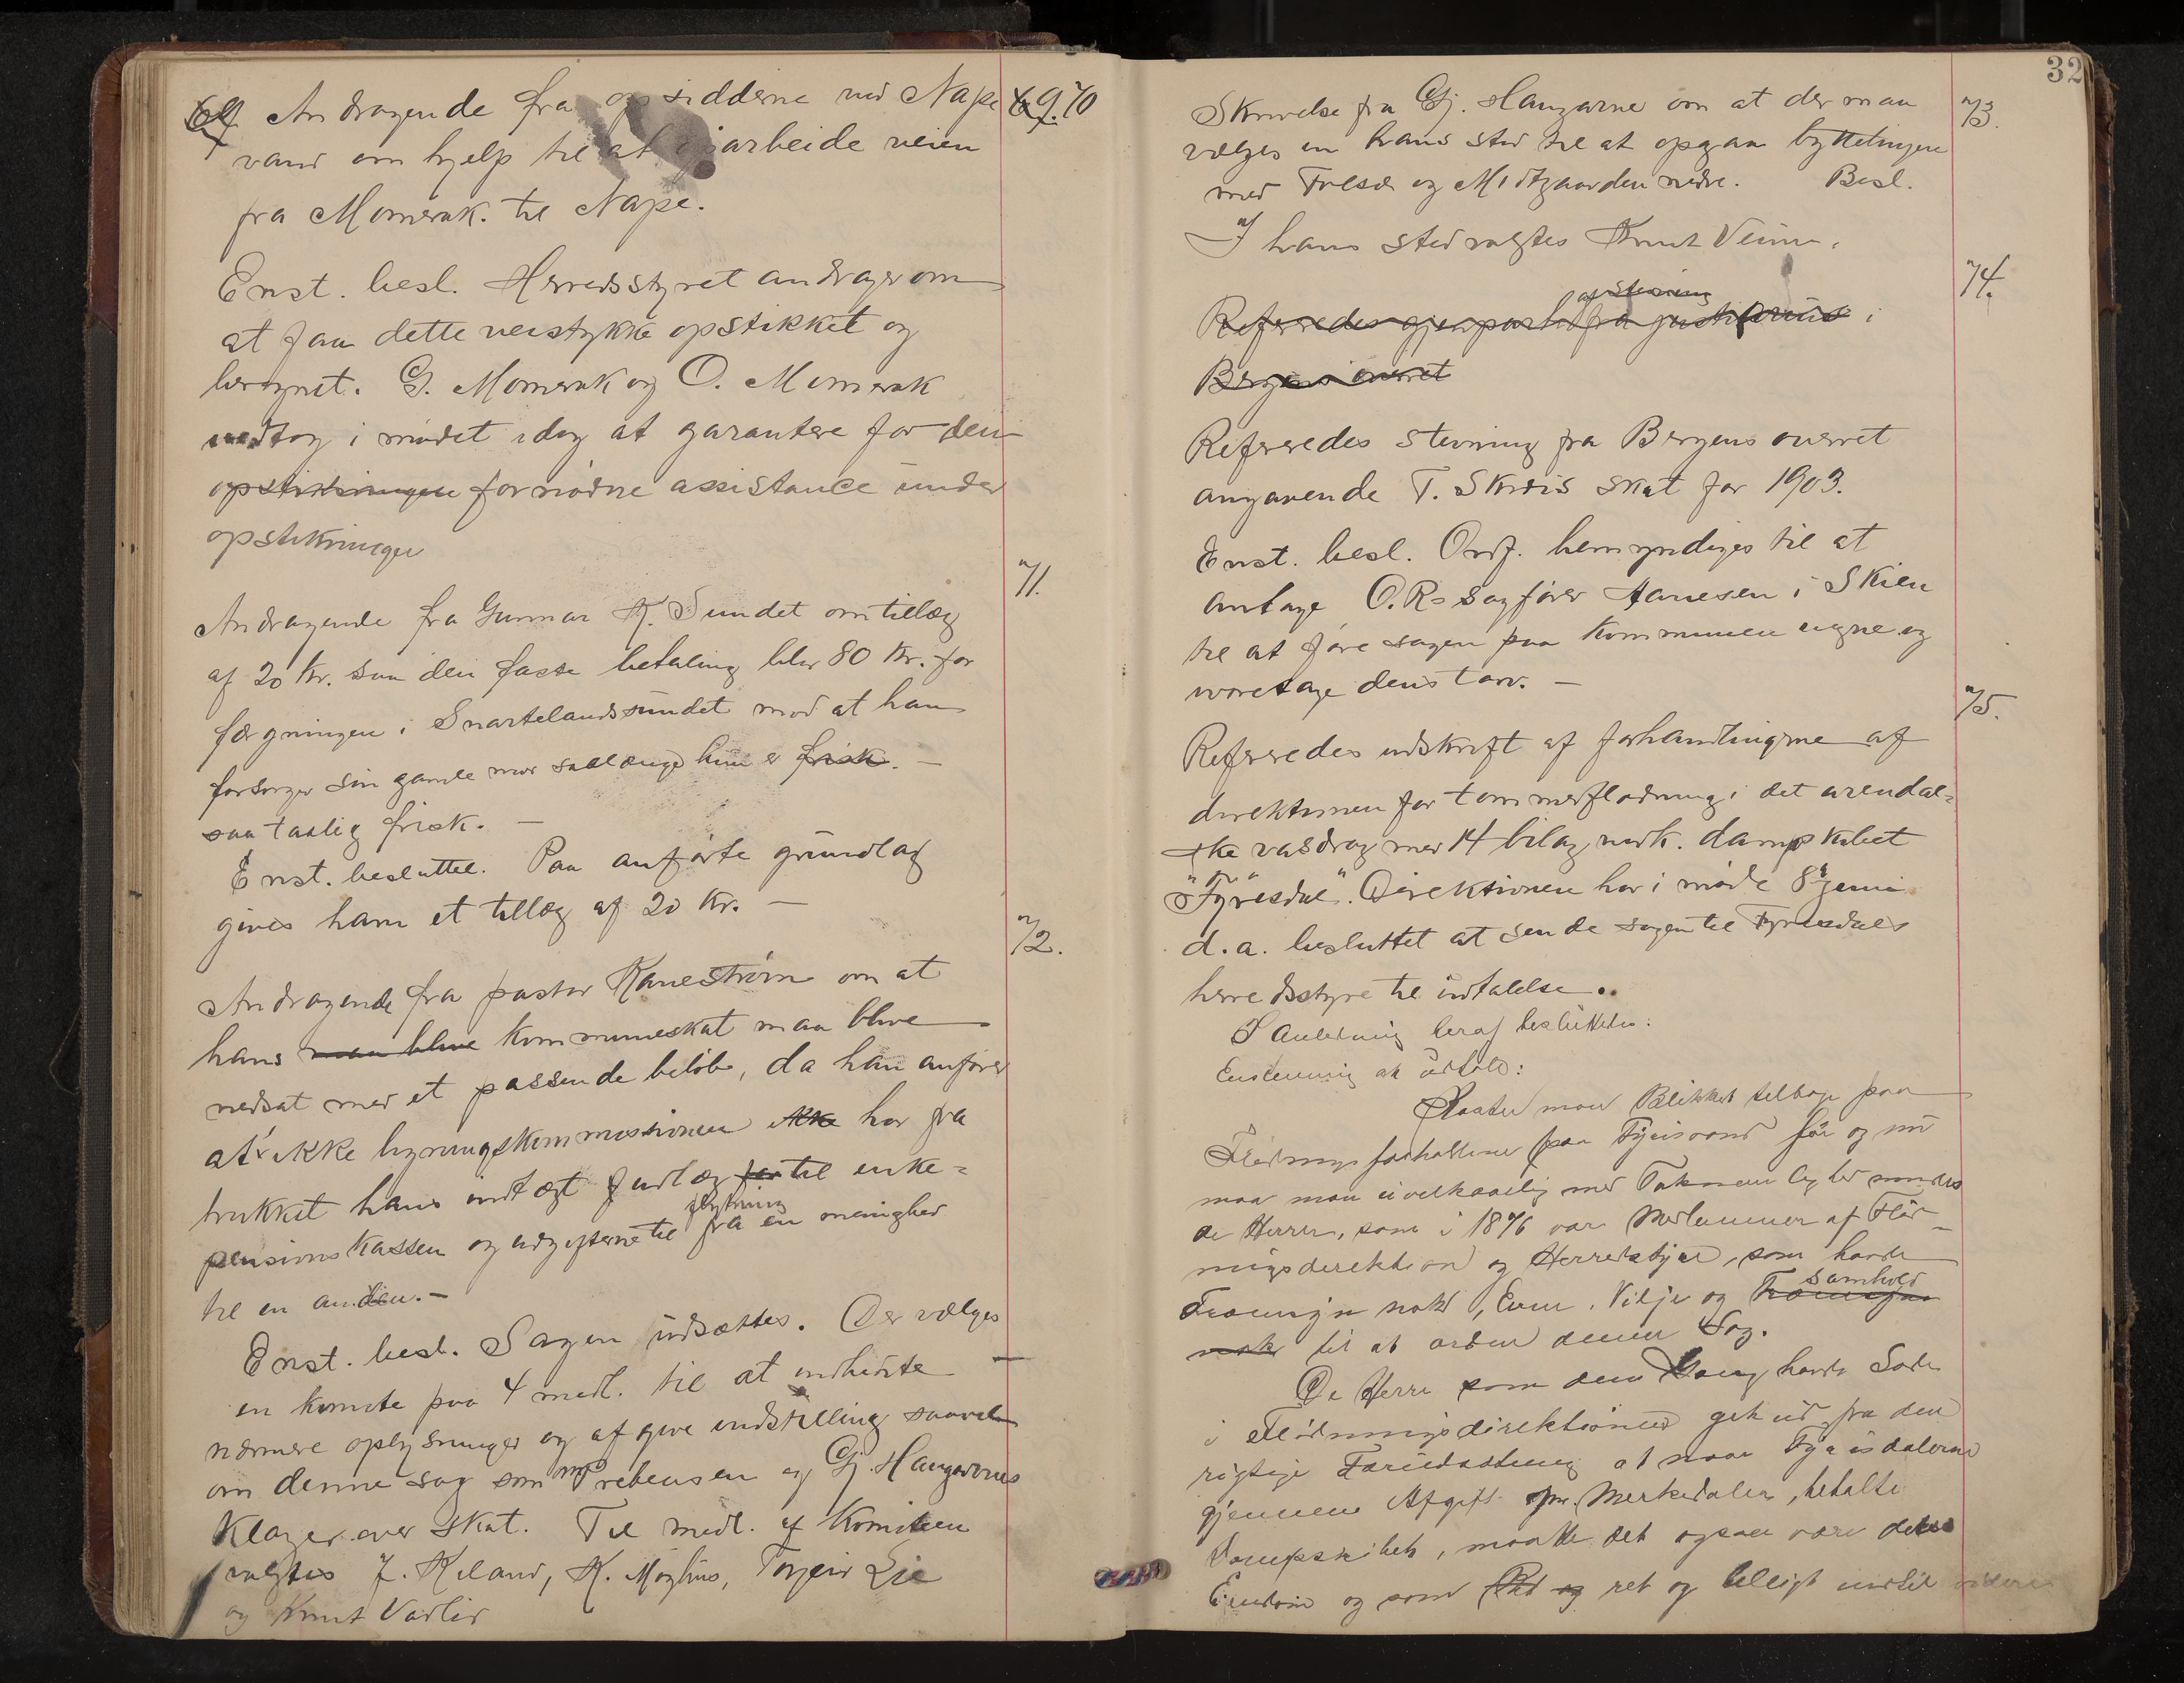 69 Andragende fra opsidderne ved Nape 69. 70
vand om hjelp til at oparbeide veien
fra Momrak. til Nape.
Enst. besl. Herredsstyret andrager om
at faa dette veistykke opstikket og
beregnet. G. Momrak og O. Momrak
vedtog i mödet idag at garantere for den
opstikningen fornödne assistance under
opstikningen
71.
Andragende fra Gunnar K. Sundet om tillæg
af 20 kr. saa den faste betaling blir 80 Kr. for
færgningen i Snartelandssundet mod at han
forsorger sin gamle mor saalænge hun er frisk. —
saa taalig frisk. —
Enst. besluttet. Paa anförte grundlag
gives ham et tillæg af 20 Kr. —
72.
Andragende fra pastor Kaneström om at
hans maa blive kommuneskat maa blive
nedsat med et passende belöb, da han anförer
at ikke ligningskommissionen ikke har fra
trukket hans indtægt indlæg for til enke=
pensionskassen og udgifterne til flytning fra en menighed
til en anden. —
Enst. besl. Sagen udsættes. Der vælges
en komite paa 4 medl. til at indhente
nærmere oplysninger og afgive indstilling saavel
om denne sag som Prebensen og Gj. Haugarnes
Klager over skat. Til medl. af Komiteen
valgtes J. Kiland, K. Moghus, Torgeir Lie
og Knut Vadlid
32
Skrivelse fra Gj. Haugarne om at der maa 73.
vælges en hans sted til at opgaa byttelinjen
med Folsæ og Midtgaarden nedre. Besl.
I hans sted valgtes Knut Veum.
74.
af stevning
Refereredes gjenpart fra justitiarius i
Bergens overret
Refereredes stevning fra Bergens overret
angaaende T. Skreis skat for 1903.
Enst. besl. Ordf. bemyndiges til at
antage O.R=sagförer Hansen i Skien
til at före sagen paa kommunen vegne og
varetage dens tarv. —
75.
Refereredes udskrift af forhandlingerne af
direktionen for tömmerflødning i det arendal=
ske vasdrag med 14 bilag vedk. dampskibet
"Fyresdal". Direktionen har i möde 8de juni
d.a. besluttet at sende sagen til Fyresdals
herredsstyre til udtalelse.
I anledning heraf besluttedes:
Enstemmig at udtale:
Kaster man Blikket tilbage paa
Flødningsforholdene paa Fyrisvand för og nu
maa man uvilkaarlig med Taknemlighed mindes
de Herrer, som i 1876 var Medlemmer af Flöd-
ningsdirektion og Herredsstyre, som havde
Framsyn nok, Evne, Vilje og samhold Framsyn
nok til at ordne denne Sag.
De Herrer som den Gang havde Sæde
i Flödningsdirektionen gik ud fra den
rigtige Forudsætning at naar Fyrisdølerne
gjennem Afgift pr. Merkedalen, betalte
Dampskibet, maatte det ogsaa være deres
Eiendom og som Ret og ret og billigt indtil videre